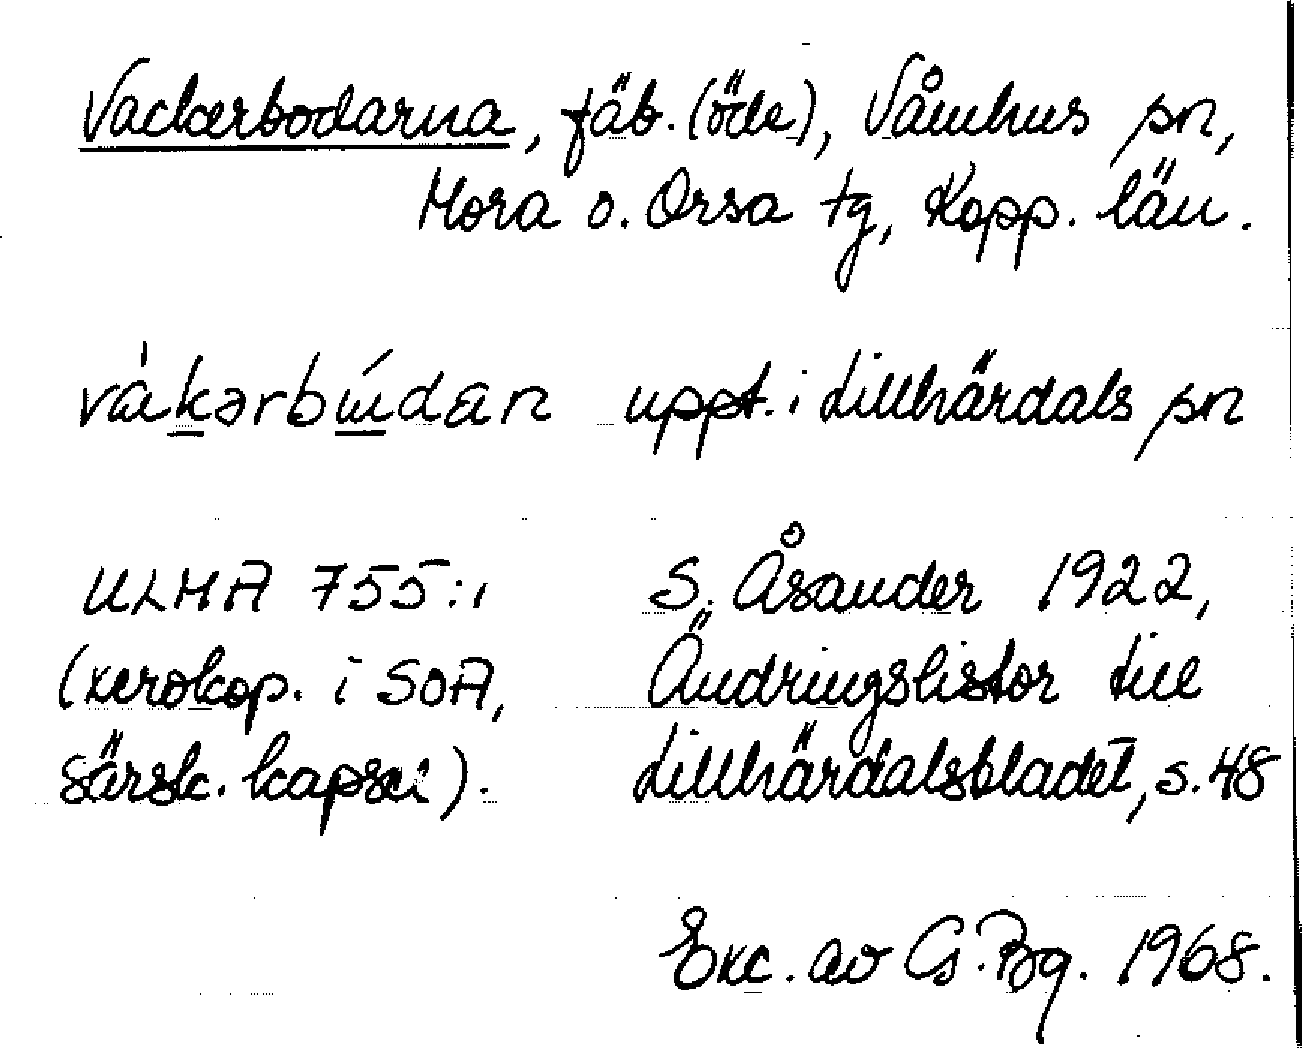 Vackerbodarna, fäb. (öde), Våmhus sn,
Mora o. Orsa tg, Kopp. län.
uppt. i Lillhärdals sn
ULMA 755:1
(xerokop. i SOA,
särsk. kapsel).
S. Åsander 1922,
Ändringslistor till
Lillhärdalsbladet, s. 48
Exc. av G. Bg. 1968.